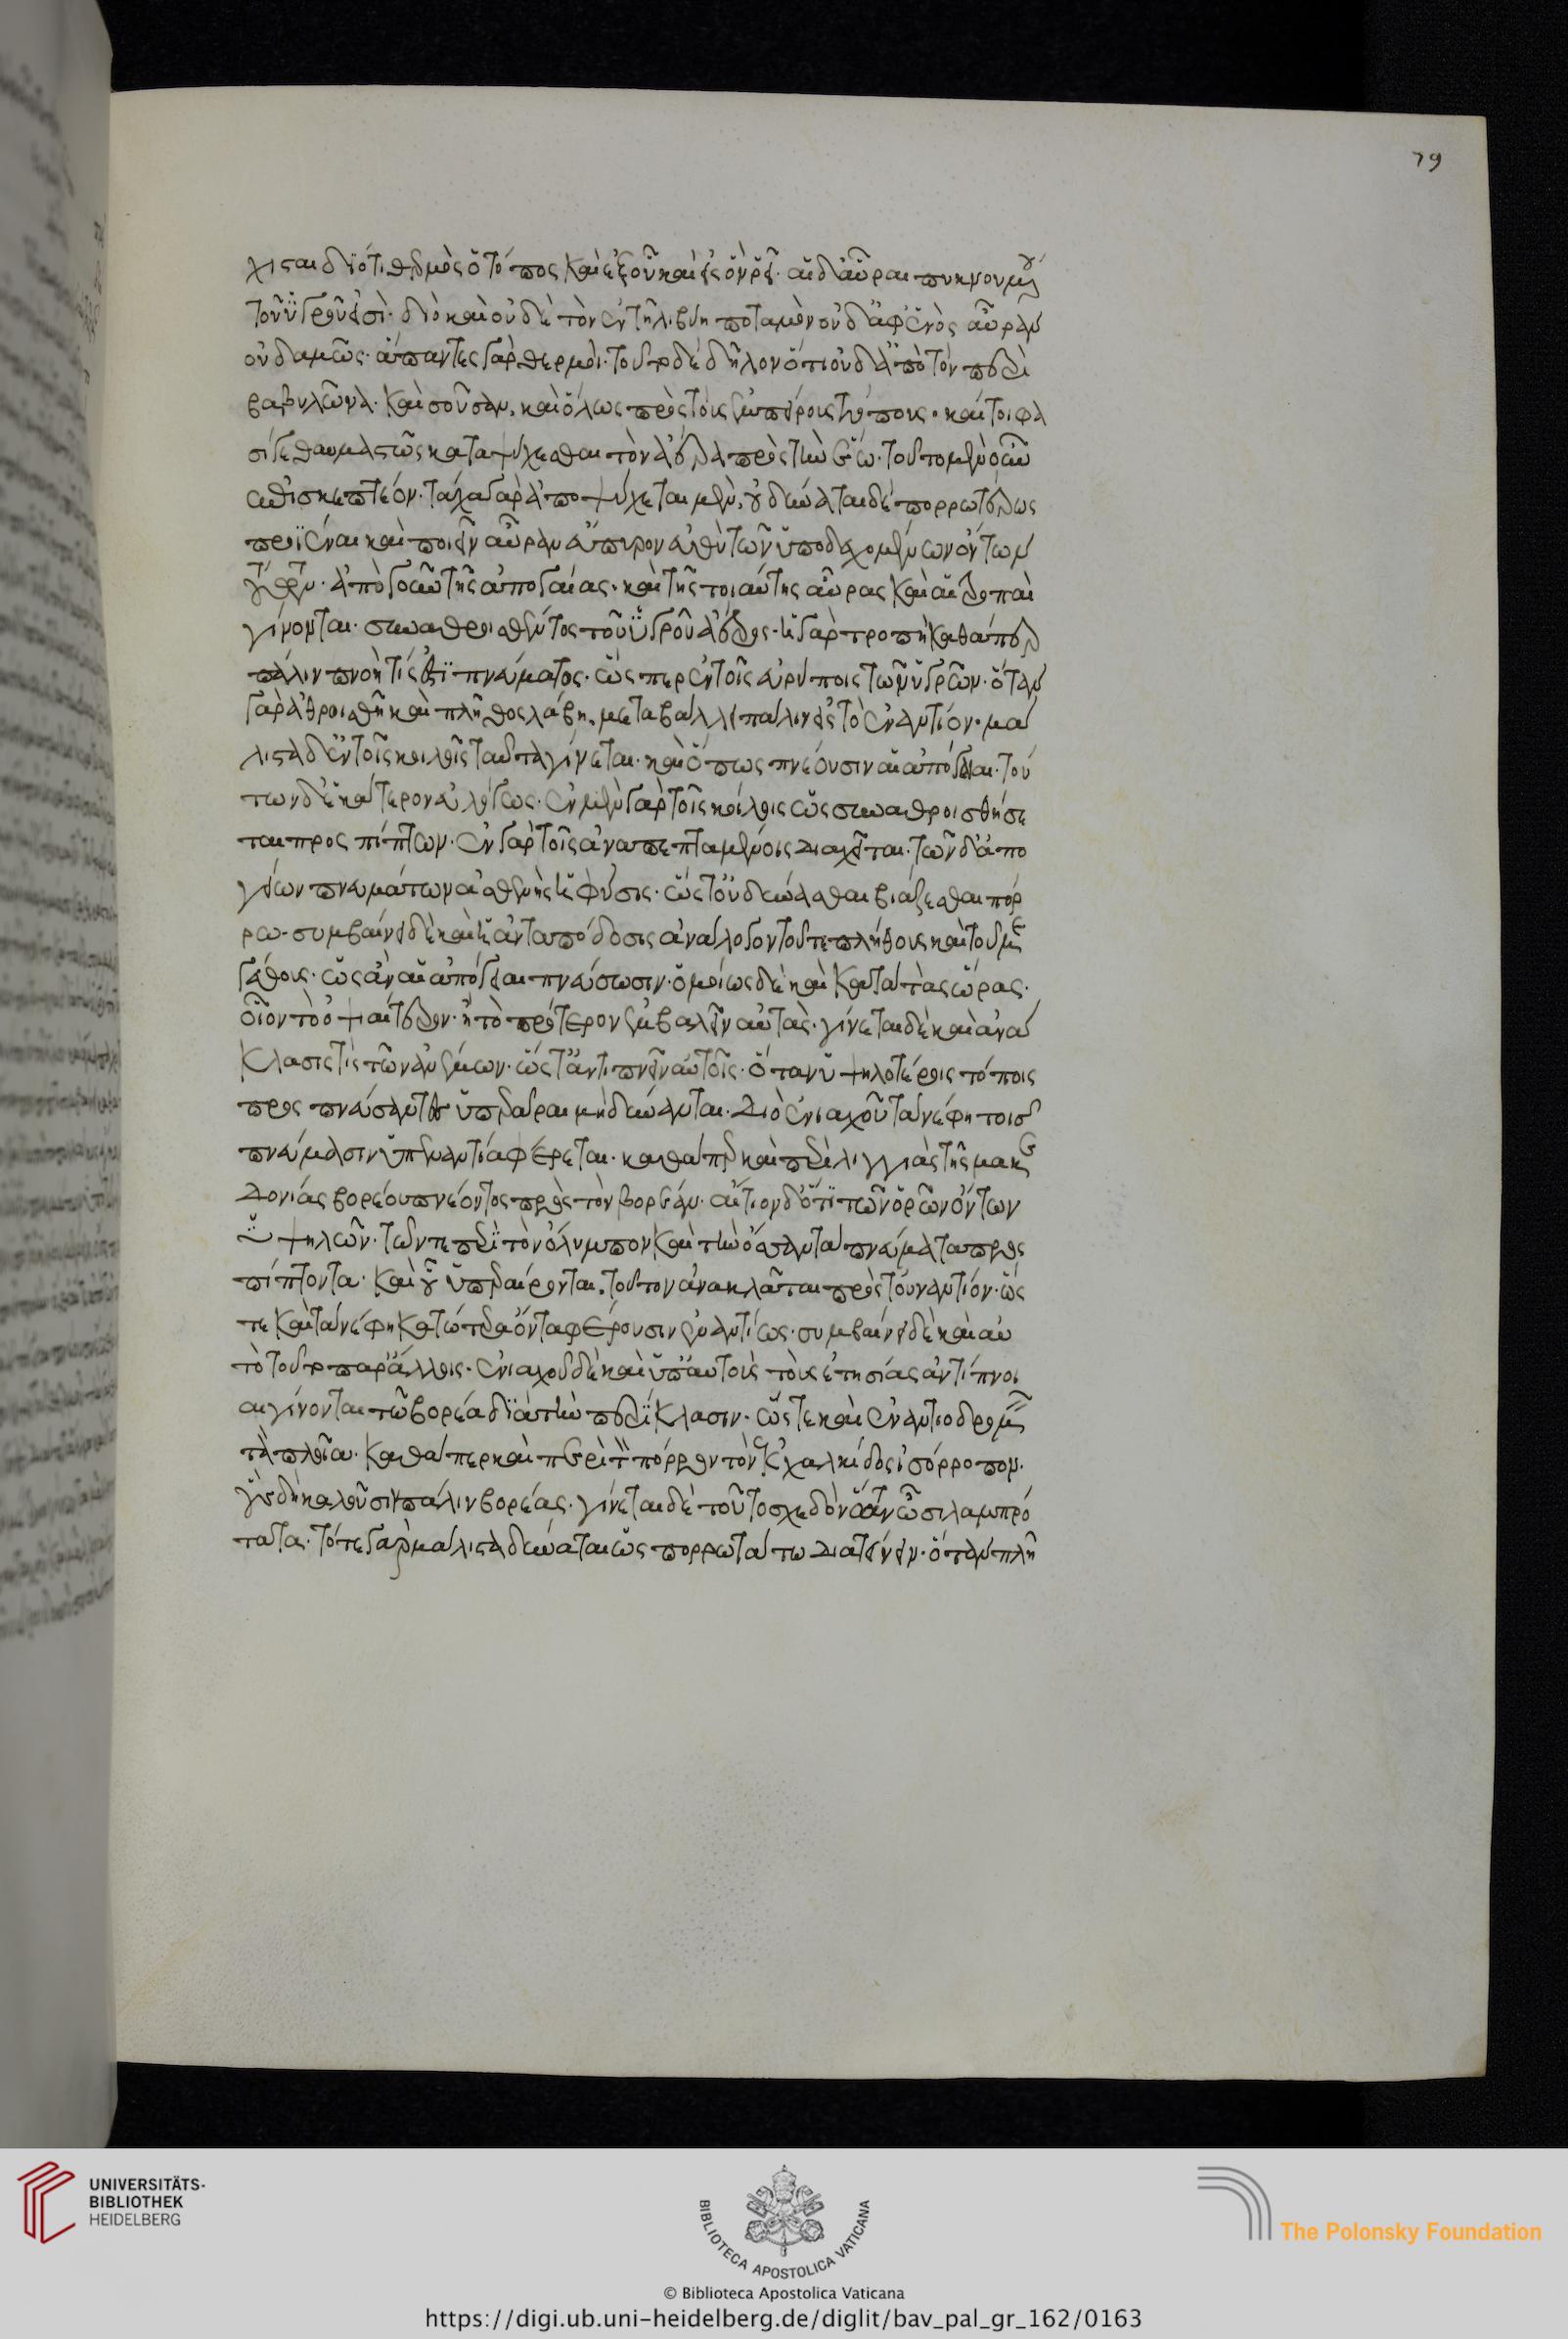 λισται διότι θερμὸς ὁ τόπος καὶ ἐξ οὗ καὶ εἰς ὃν ῥεῖ· αἱ δ' αὖραι πυκνουμένου
τοῦ ὑγροῦ εἰσὶ· διὸ καὶ οὐδὲ τὸν ἐν τῆ λιβύη ποταμὸν οὐδ' ἀφ' ἑνὸς αὖραν
οὐδαμῶς· ἅπαντες γὰρ θερμοὶ· τοῦτο δὲ δῆλον ὅτι οὐδ' ἀπὸ τὸν περὶ
βαβυλῶνα· καὶ σοῦσαν, καὶ ὅλως πρὸς τοῖς ἐμπύροις τόποις· καίτοι φα
σί γε θαυμαστῶς καταψύχεσθαι τὸν ἀέρα πρὸς τὴν ἕω· τοῦτο μὲν οὖν
ἐπισκεπτέον· τάχα γὰρ ἀποψύχεται μὲν, οὐ δύναται δὲ πορρωτέρως
προϊέναι καὶ ποιεῖν αὖραν ἄπυρον εὐθὺ τῶν ὑποδεχομένων ὄντων
γίνεται· ἀπὸ γοῦν τῆς ἀπογαίας· καὶ τῆς τοιαύτης αὔρας καὶ αἱ τροπαὶ
γίνονται· συναθροισθέντος τοῦ ὑγροῦ ἀέρος· ἡ γὰρ τροπὴ καθάπερ
πάλιν πνοή τίς ἐστι πνεύματος· ὥσπερ ἐν τοῖς εὐρίποις τῶν ὑγρῶν· ὅταν
γὰρ ἀθροισθῆ καὶ πλῆθος λάβη, μεταβάλλει πάλιν εἰς τὸ ἐναντίον· μά
λιστα δ' ἐν τοῖς κοίλοις ταῦτα γίνεται· καὶ ὅπως πνέουσιν αἱ ἀπόγειαι· τού
των δ' ἑκάτερον εὐλόγως· ἐν μὲν γὰρ τοῖς κοίλοις ὡς συναθροισθήσε
ται προσπίπτων· ἐν γὰρ τοῖς ἀναπεπταμένοις διαχεῖται· τῶν δ' ἀπο
γείων πνευμάτων ἀσθενὴς ἡ φύσις· ὥς το οὐ δύνασθαι βιάζεσθαι πόρ
ρω· συμβαίνει δὲ καὶ ἡ ἀνταπόδοσις ἀνάλογον τοῦ τε πλήθους καὶ τοῦ με
γέθους· ὡς ἂν αἱ ἀπόγειαι πνεύσωσιν· ὁμοίως δὲ καὶ κατὰ τὰς ὥρας·
οἷον τὸ ὀψιαίτερον· ἢ τὸ πρότερον ἐμβαλεῖν αὐτὰς· γίνεται δὲ καὶ ἀνά
κλασίς τις τῶν ἀνέμων· ὥστ' ἀντιπνεῖν αὐτοῖς· ὅταν ὑψηλοτέροις τόποις
προσπνεύσαντες ὑπεραίραι μὴ δύνανται· διὸ ἐνιαχοῦ τὰ νέφη τοῖς
πνεύμασιν ὑπεναντία φέρεται· καθάπερ καὶ περὶ λιγγιὰς τῆς μακε
δονίας βορέου πνέοντος πρὸς τὸν βορέαν· αἴτιον δ' ὅτι τῶν ὀρῶν ὄντων
ὑψηλῶν· τῶν τε περὶ τὸν ὄλυμπον καὶ τὴν ὄσσαν τὰ πνεύματα προσ
πίπτοντα· καὶ οὐχ ὑπεραίροντα, τοῦτον ἀνακλᾶται πρὸς τοὐναντίον· ὥσ
τε καὶ τὰ νέφη κατώτερα ὄντα φέρουσιν ἐναντίως· συμβαίνει δὲ καὶ αὐ
τὸ τοῦτο παρ' ἄλλοις· ἐνιαχοῦ δὲ καὶ ὑπ' αὐτοὺς τοὺς ἐτησίας ἀντίπνοι
αι γίνονται τῶ βορέα διὰ τὴν περίκλασιν· ὥστε καὶ ἐναντιοδρομεῖν
τὰ πλοῖα· καθάπερ καὶ περὶ τὸν πόρρον τὸν ἐκ χαλκίδος ἰσόρροπον·
οὓς δὴ καλοῦσι παλινβορέας· γίνεται δὲ τοῦτο σχεδὸν ὅταν ὦσι λαμπρό
τατα· τότε γὰρ μάλιστα δύναται ὡς πορρωτάτω διατείνειν· ὅταν πλῆ
79
UNIVERSITÄTS-
BIBLIOTHEK
HEIDELBERG
BIBLIOTECA APOSTOLICA VATICANA
The Polonsky Foundation
© Biblioteca Apostolica Vaticana
https://digi.ub.uni-heidelberg.de/diglit/bav_pal_gr_162/0163